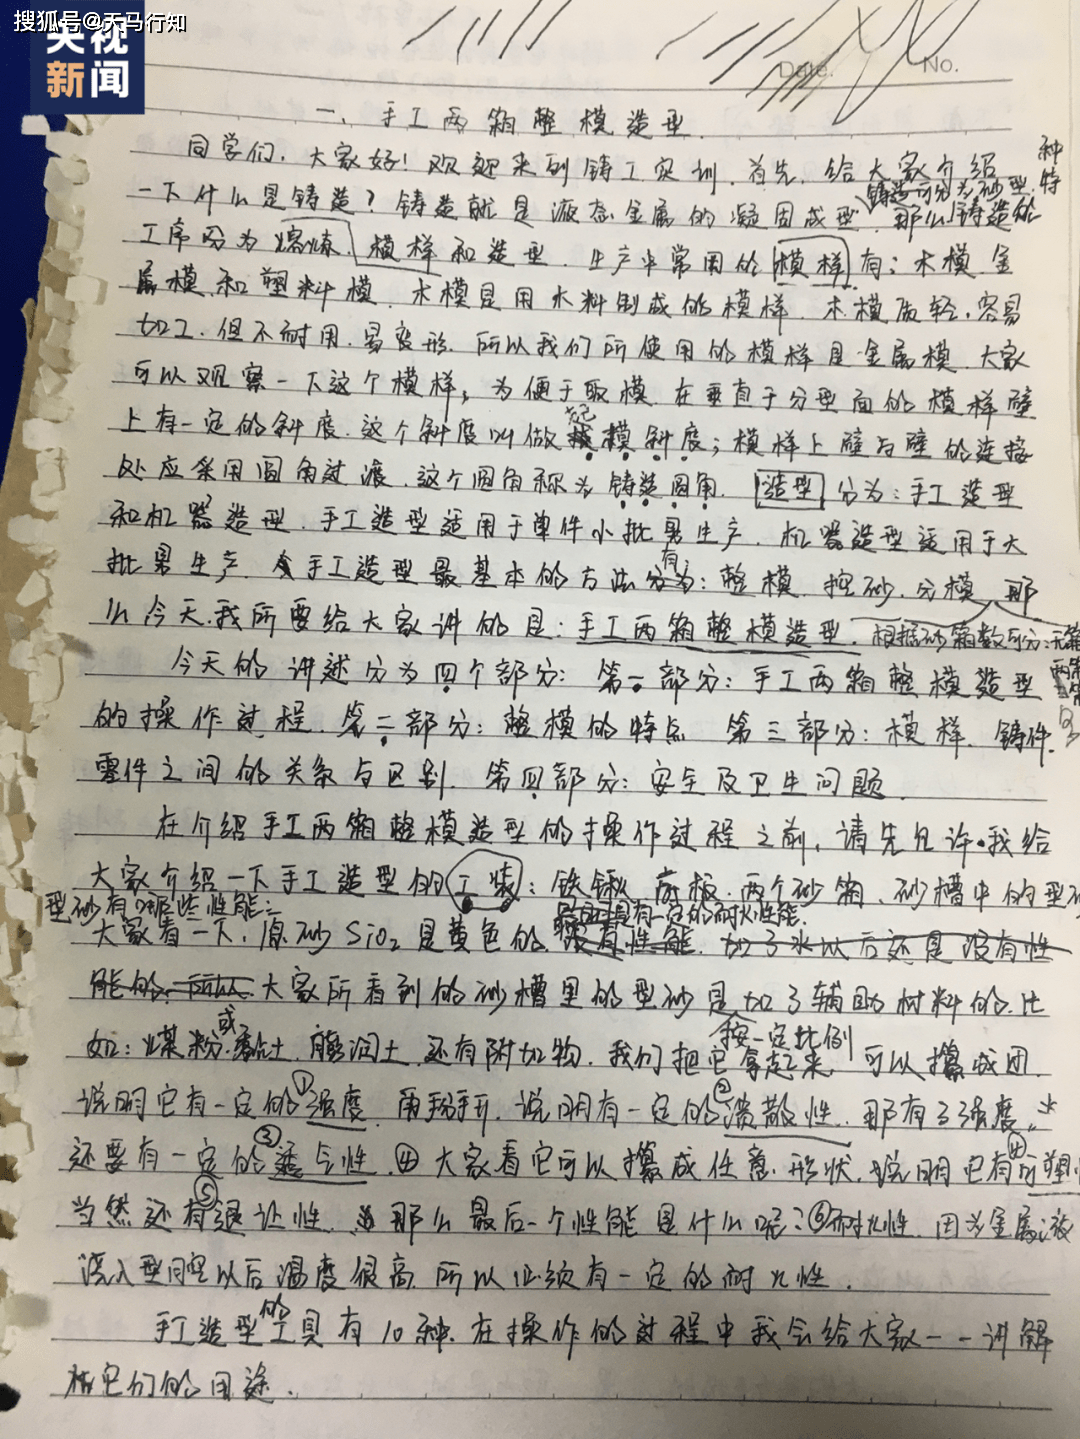 搜狐号@天马行知
央视
新闻
Date.
No.
一、手工两箱整模造型
同学们，大家好！欢迎来到铸工实训，首先，给大家介绍
一下什么是铸造？铸造就是液态金属的凝固成型，那么铸造的
铸造可分为砂型
种特
工序分为熔炼、模样和造型，生产中常用的模样有：木模、金
属模和塑料模，木模是用木料制成的模样，木模质轻，容易
加工，但不耐用，易变形，所以我们所使用的模样是金属模，大家
可以观察一下这个模样，为便于取模，在垂直于分型面的模样壁
上有一定的斜度，这个斜度叫做起模斜度；模样上壁与壁的连接
处应采用圆角过渡，这个圆角称为铸造圆角，造型分为：手工造型
和机器造型，手工造型适用于单件小批量生产，机器造型适用于大
批量生产，手工造型最基本的方法有：整模、挖砂、分模，那
么今天，我所要给大家讲的是：手工两箱整模造型，根据砂箱数可分：无箱
两箱
今天的讲述分为四个部分：第一部分：手工两箱整模造型
的操作过程，第二部分：整模的特点，第三部分：模样、铸件、
零件之间的关系与区别，第四部分：安全及卫生问题
在介绍手工两箱整模造型的操作过程之前，请先允许我给
大家介绍一下手工造型的工装：铁锹、底板、两个砂箱、砂槽中的型砂
型砂有哪些性能：
具有一定的耐火性能
大家看一下，原砂SiO₂是黄色的没有性能，加了水以后还是没有性
能的，所以大家所看到的砂槽里的型砂是加了辅助材料的，比
如：煤粉或黏土、膨润土，还有附加物，我们把它拿起来，可以攥成团，
按一定比例
说明它有一定的①强度，用手掰开，说明有一定的②溃散性，那有了强度，
还要有一定的③透气性，④大家看它可以攥成任意形状，说明它有④可塑性
当然还有⑤退让性，那么最后一个性能是什么呢？⑥耐火性，因为金属液
浇入型腔以后温度很高，所以必须有一定的耐火性，
手工造型的工具有10种，在操作的过程中我会给大家一一讲解
它们的用途，